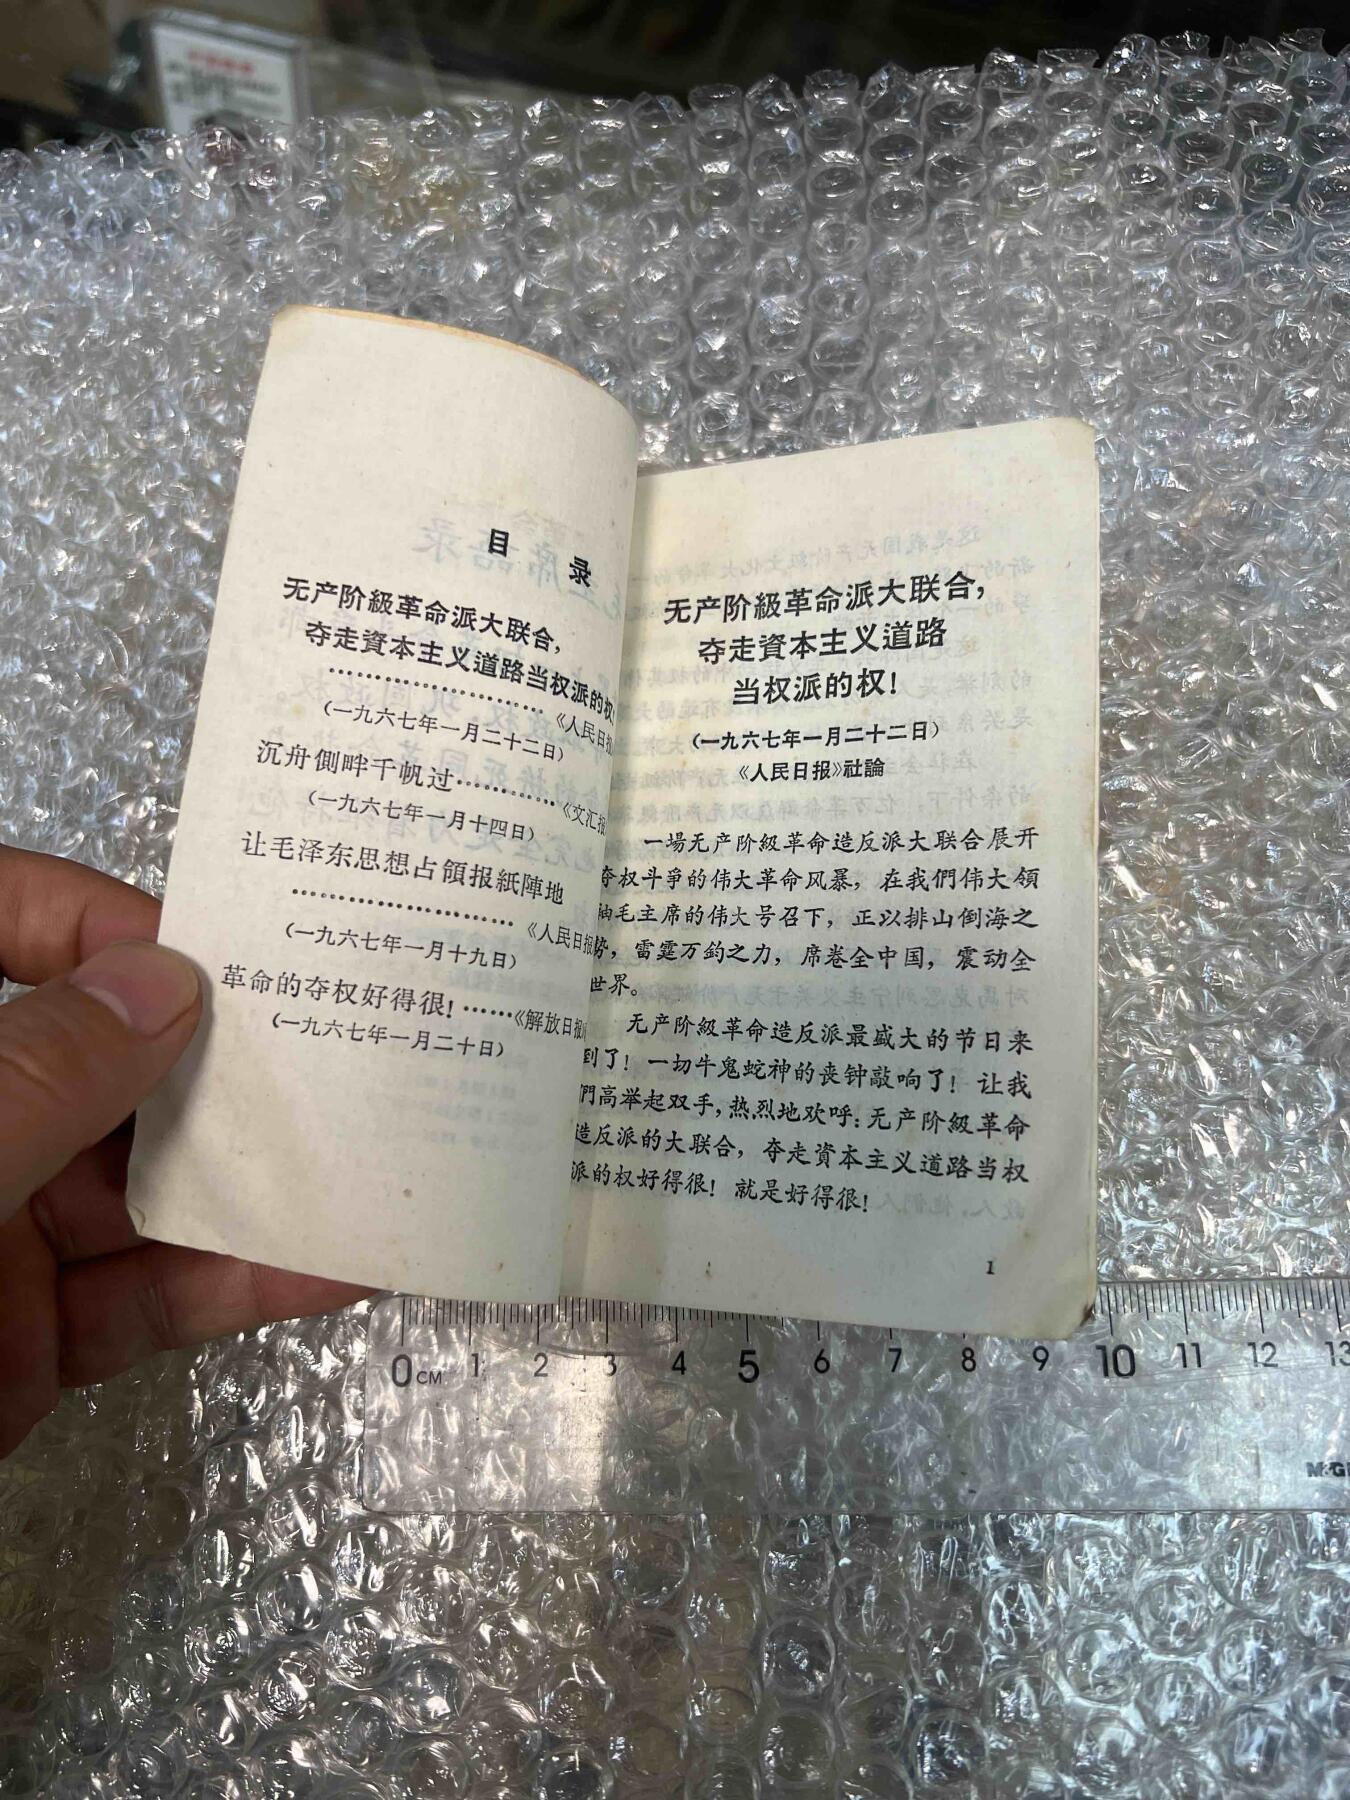 目 录
无产阶級革命派大联合，
夺走資本主义道路当权派的权！
…………………… 《人民日报
(一九六七年一月二十二日)
沉舟側畔千帆过…………《文汇报
(一九六七年一月十四日)
让毛泽东思想占領报紙陣地
…………………… 《人民日报
(一九六七年一月十九日)
革命的夺权好得很！……《解放日报
(一九六七年一月二十日)
无产阶級革命派大联合，
夺走資本主义道路
当权派的权！
(一九六七年一月二十二日)
《人民日报》社論
一場无产阶級革命造反派大联合展开
夺权斗爭的伟大革命风暴，在我們伟大領
袖毛主席的伟大号召下，正以排山倒海之
势，雷霆万鈞之力，席卷全中国，震动全
世界。
无产阶級革命造反派最盛大的节日来
到了！一切牛鬼蛇神的丧钟敲响了！让我
們高举起双手，热烈地欢呼：无产阶級革命
造反派的大联合，夺走資本主义道路当权
派的权好得很！就是好得很！
1
0 CM 1 2 3 4 5 6 7 8 9 10 11 12 13
M&G